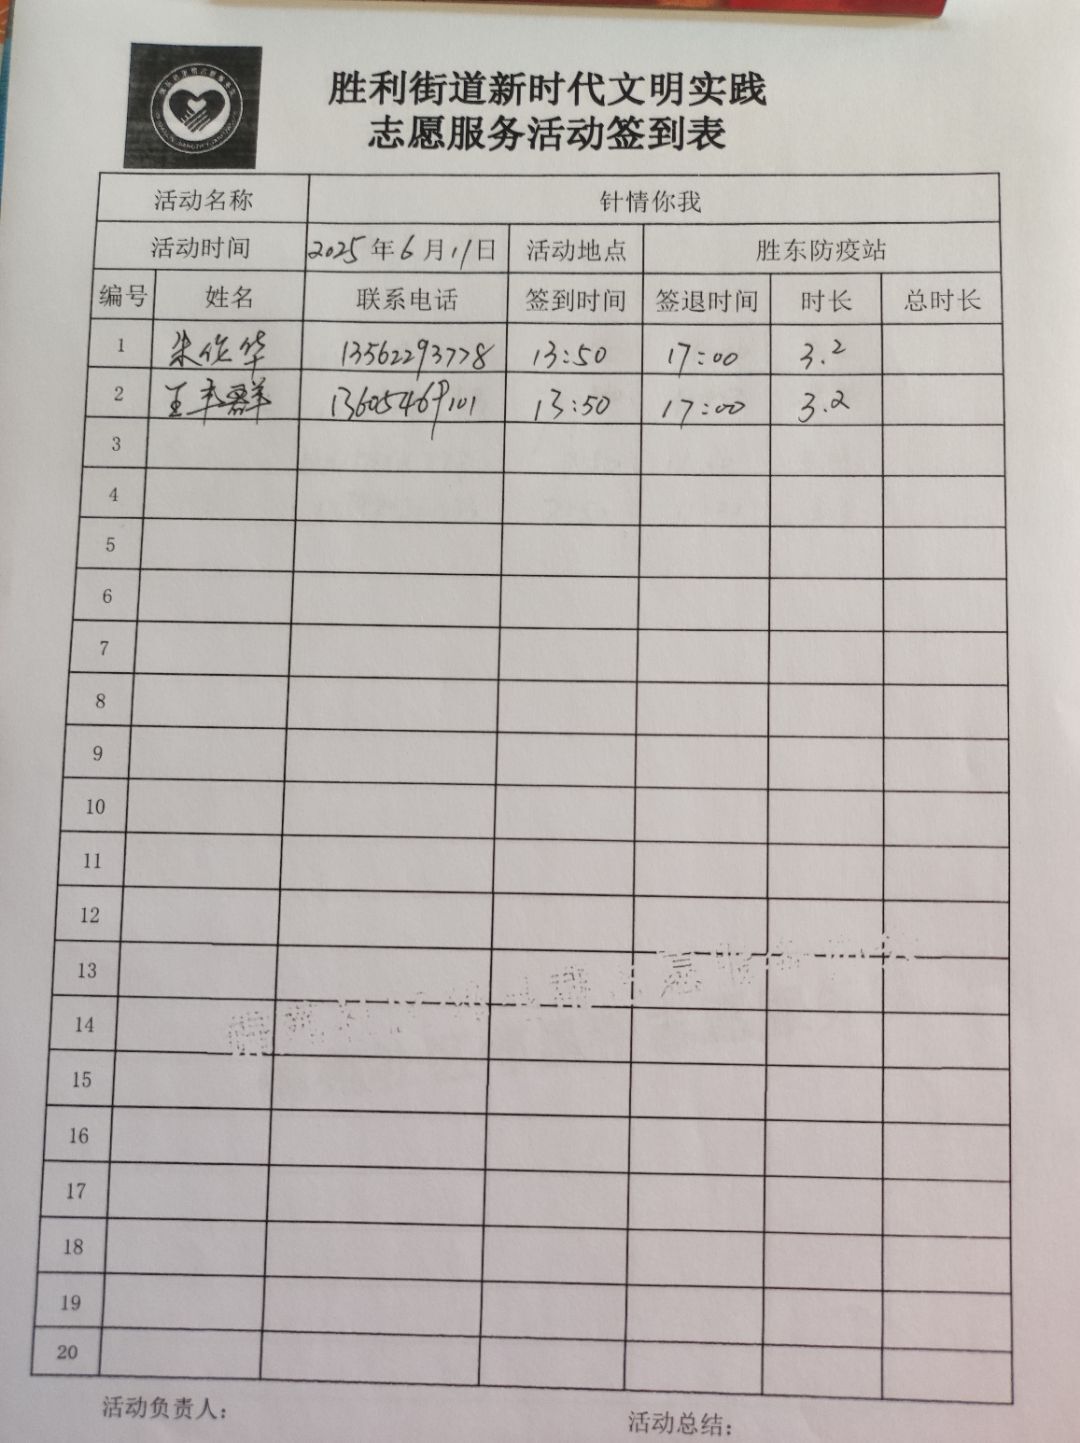 胜利街道新时代文明实践
志愿服务活动签到表
活动名称 针情你我
活动时间 2025年6月11日 活动地点 胜东防疫站
编号 姓名 联系电话 签到时间 签退时间 时长 总时长
1 朱作华 13562293778 13:50 17:00 3.2
2 王丰群 13605469101 13:50 17:00 3.2
3
4
5
6
7
8
9
10
11
12
13
14
15
16
17
18
19
20
活动负责人：
活动总结：